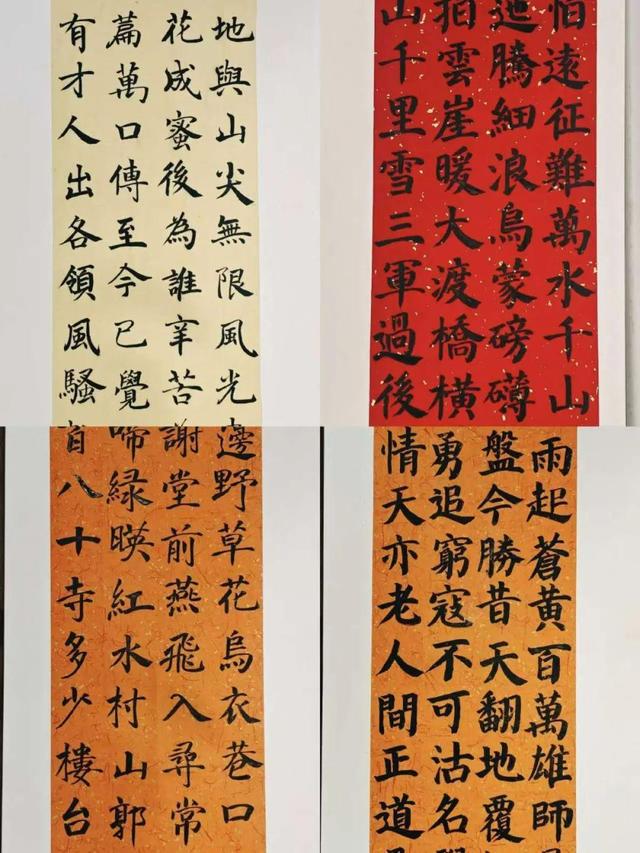 地與山尖無限風光
花成蜜後為誰辛苦
篇萬口傳至今已覺
有才人出各領風騷
怕遠征難萬水千山
迤騰細浪烏蒙磅礴
拍雲崖暖大渡橋橫
山千里雪三軍過後
邊野草花烏衣巷口
謝堂前燕飛入尋常
啼緑暎紅水村山郭
百八十寺多少樓台
雨起蒼黃百萬雄師
盤今勝昔天翻地覆
勇追窮寇不可沽名
情天亦老人間正道